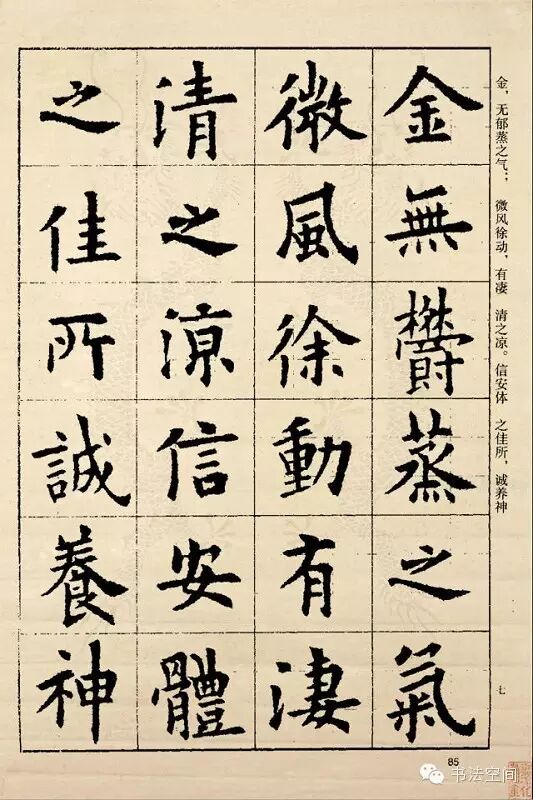 金無鬱蒸之氣
微風徐動有淒
清之涼信安體
之佳所誠養神
金，无郁蒸之气；，微风徐动，有凄清之凉。信安体之佳所，诚养神
七
85
书法空间